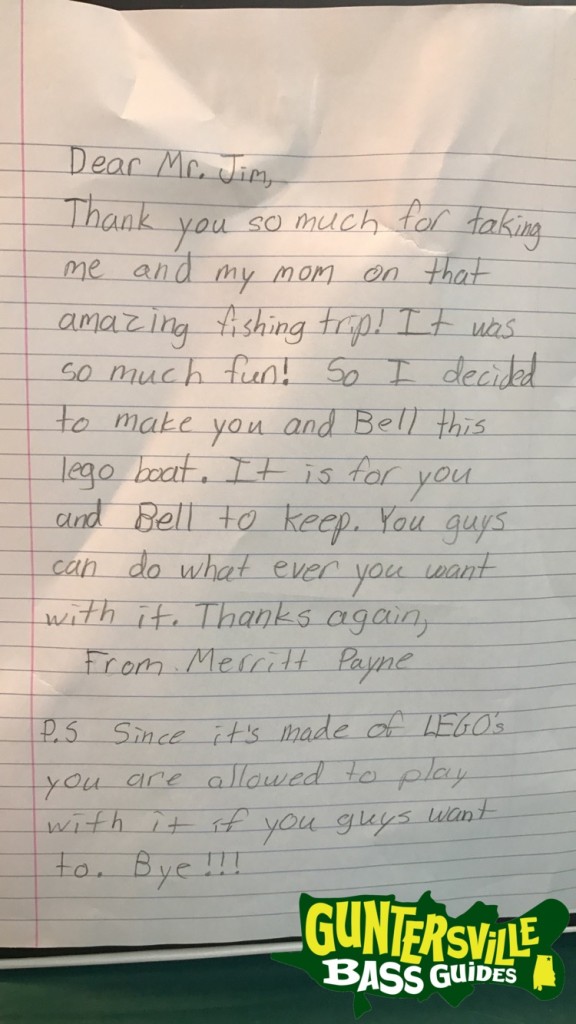 Dear Mr. Jim,
Thank you so much for taking
me and my mom on that
amazing fishing trip! It was
so much fun! So I decided
to make you and Bell this
lego boat. It is for you
and Bell to keep. You guys
can do what ever you want
with it. Thanks again,
From Merritt Payne
P.S Since it's made of LEGO's
you are allowed to play
with it if you guys want
to. Bye!!!
GUNTERSVILLE
BASS GUIDES